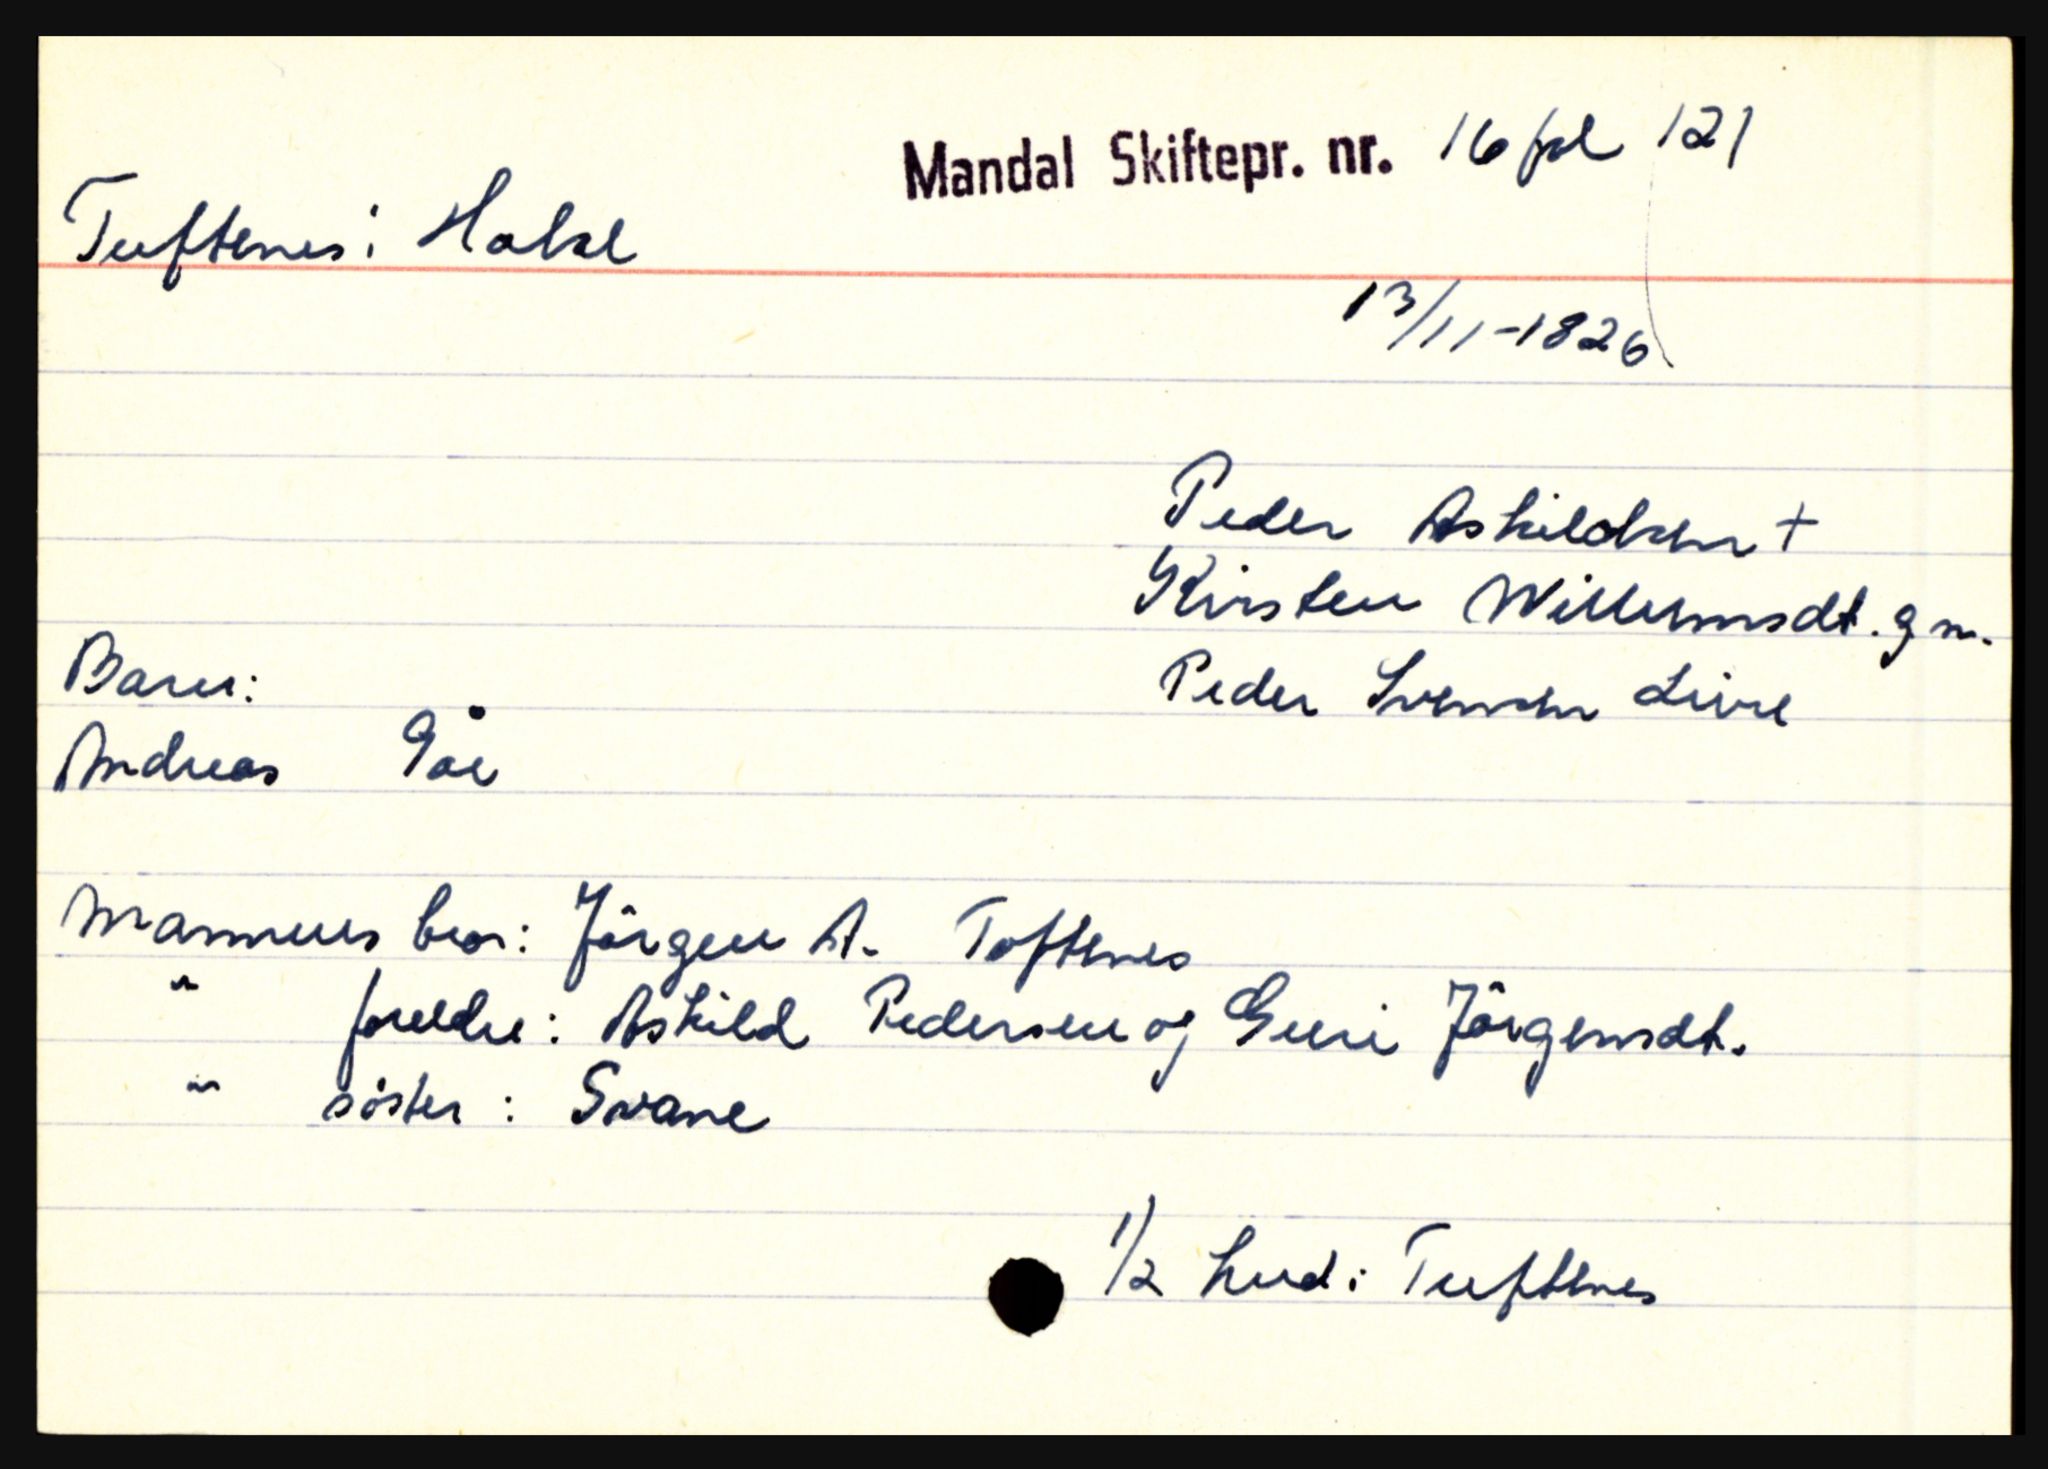 Mandal Skiftepr. nr. 16 fol 121
Tuftenes i Halse
13/11-1826
Peder Askildsen +
Kirsten Willumsdt. g m.
Peder Svensen Live
Barn:
Andreas 9 år
Mannens bror: Jôrgen A. Toftenes
" foreldre: Askild Pedersen og Guri Jôrgensdt.
" söster: Svane
1/2 hud i Tuftenes